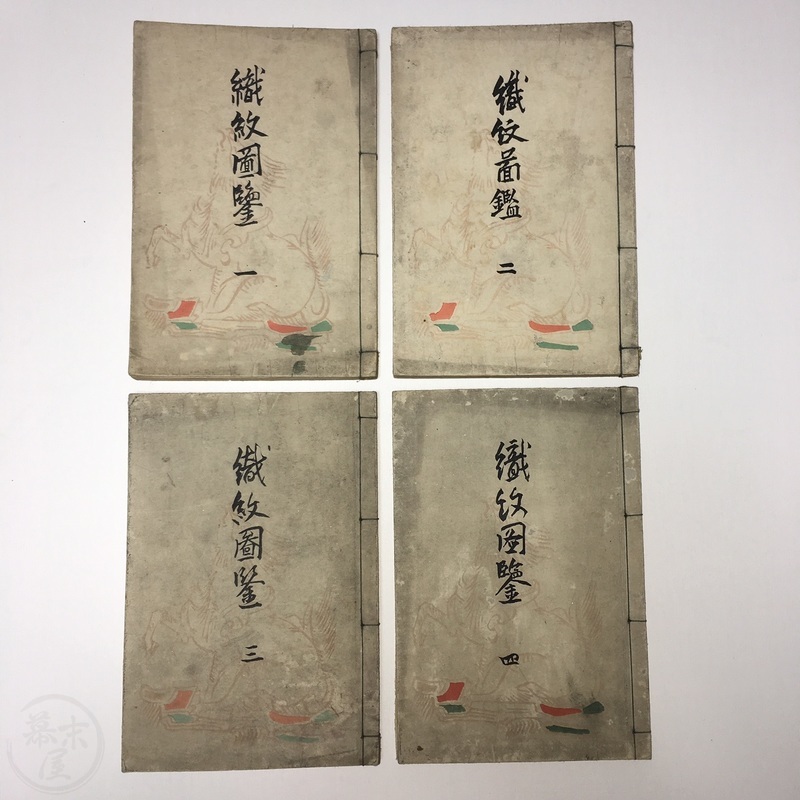 織紋圖鑒
一
織紋啚鑑
二
織紋圖鑒
三
織紋圖鑒
四
幕末屋